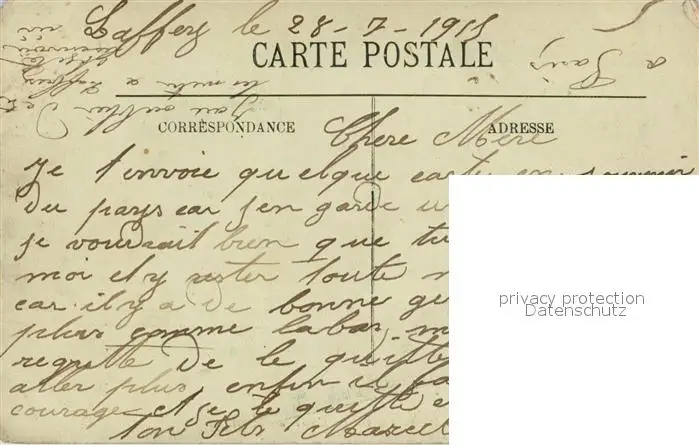 Laffrey le 28-7-1915
CARTE POSTALE
a Paris
CORRESPONDANCE
ADRESSE
Chere Mere
Je t'envoie quelque carte en souvenir
du pays car j'en garde u
je voudrait bien que tu
moi et y rester toute
car il y a de bonne ge
plus comme labas, m
regrette de le quitte
aller plus, enfin il fa
courage et je te quitte e
ton Fils Marcel
privacy protection
Datenschutz